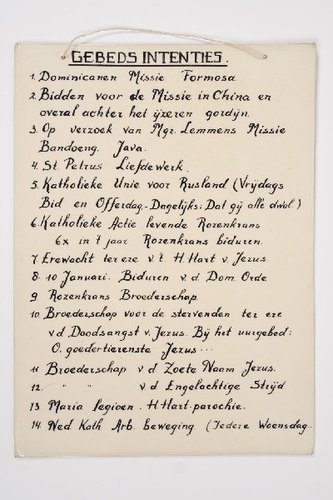 GEBEDS INTENTIES.
1. Dominicanen Missie Formosa.
2. Bidden voor de Missie in China en
overal achter het ijzeren gordijn.
3. Op verzoek van Mgr. Lemmens Missie
Bandoeng. Java.
4. St. Petrus Liefdewerk.
5. Katholieke Unie voor Rusland (Vrijdags
Bid en Offerdag - Dagelijks: Dat gij alle dwol.)
6. Katholieke Actie levende Rozenkrans
6x in 't jaar Rozenkrans biduren.
7. Erewacht ter ere v. 't H. Hart v. Jezus.
8. 10 Januari. Biduren v. d. Dom. Orde
9. Rozenkrans Broederschap.
10. Broederschap voor de stervenden ter ere
v. d. Doodsangst v. Jezus. Bij het uurgebed:
O. goedertierenste Jezus...
11. Broederschap v. d. Zoete Naam Jezus.
12. " " v. d. Engelachtige Strijd
13. Maria legioen. H. Hart-parochie.
14. Ned. Kath. Arb. beweging (Iedere Woensdag.